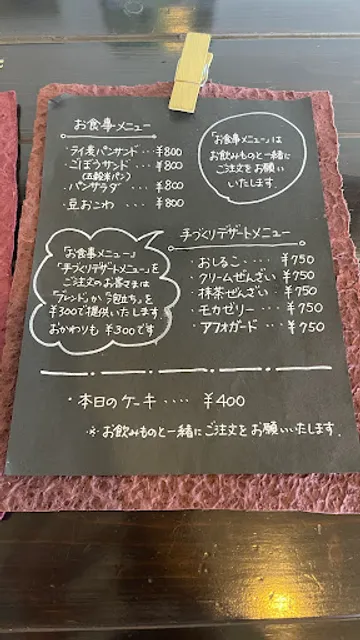 お食事メニュー
・ライ麦パンサンド・・・¥800
・ごぼうサンド・・・¥800
(五穀米パン)
・パンサラダ・・・¥800
・豆おこわ・・・¥800
「お食事メニュー」は
お飲みものと一緒に
ご注文をお願い
いたします。
手づくりデザートメニュー
・おしるこ・・・・¥750
・クリームぜんざい ¥750
・抹茶ぜんざい ¥750
・モカゼリー・・・¥750
・アフォガード・・・¥750
「お食事メニュー」
「手づくりデザートメニュー」を
ご注文のお客さまは
「ブレンド」か「泡立ち」を
¥300で提供いたします。
おかわりも ¥300です
・本日のケーキ・・・・ ¥400
※お飲みものと一緒にご注文をお願いいたします。